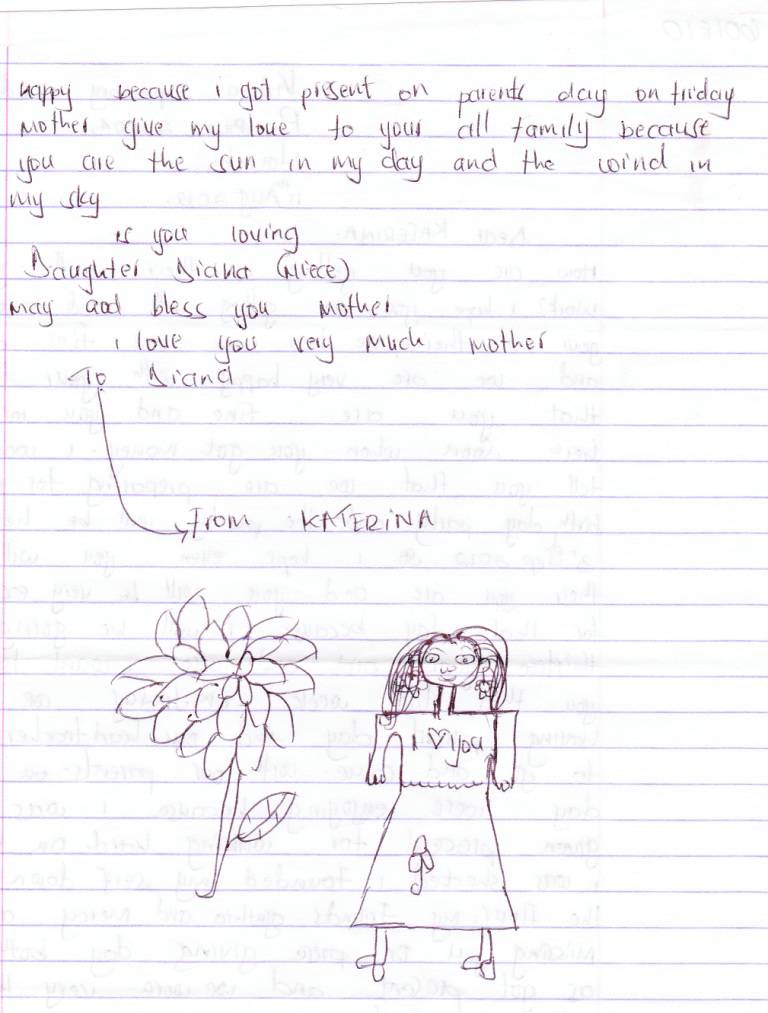 happy because i got present on parents day on friday
mother give my love to your all family because
you are the sun in my day and the wind in
my sky
is you loving
Daughter Diana (Niece)
may God bless you mother
i love you very much mother
To Diana
From KATERINA
i ♡ you